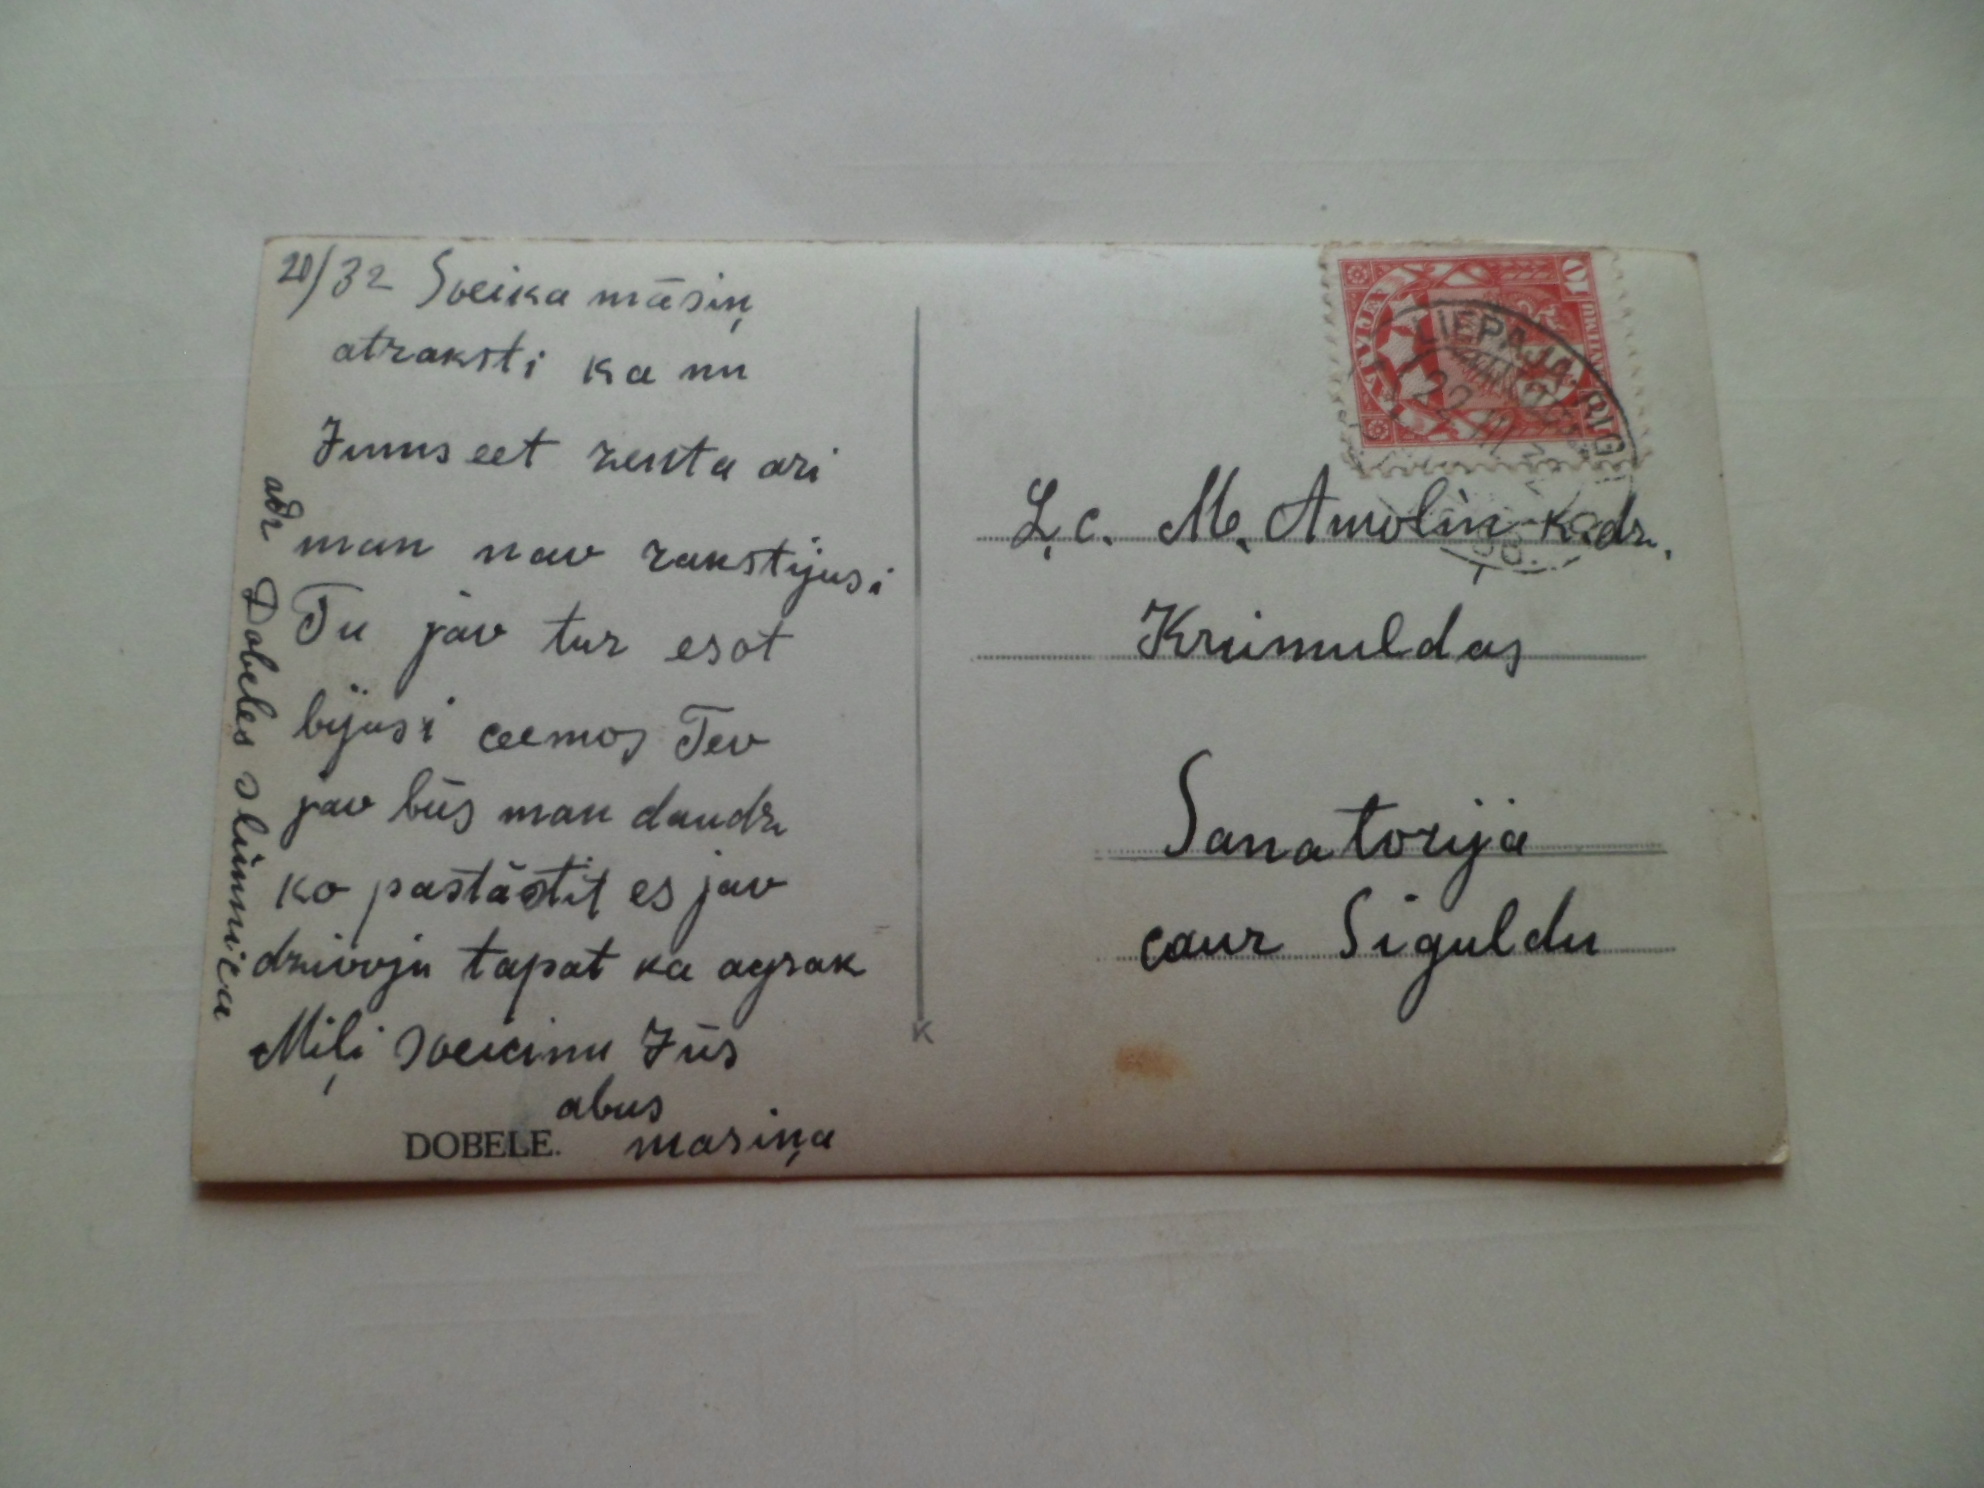 20/32 Sveika māsiņ
atraksti ka nu
Jums eet zenta ari
man nav rakstijusi
Tu jav tur esot
bijusi ceemos Tev
jav būs man daudz
ko pastāstit es jav
dzivoju tapat ka agrak
Miļi sveicinu Jūs
abus
masiņa
DOBELE.
adr Dobeles slimnica
K
LATVIJA
10
LIEPAJA-RIG
22 III
Ļ. c. M. Amoliņ k-dz.
Krimuldas
Sanatorija
caur Siguldu